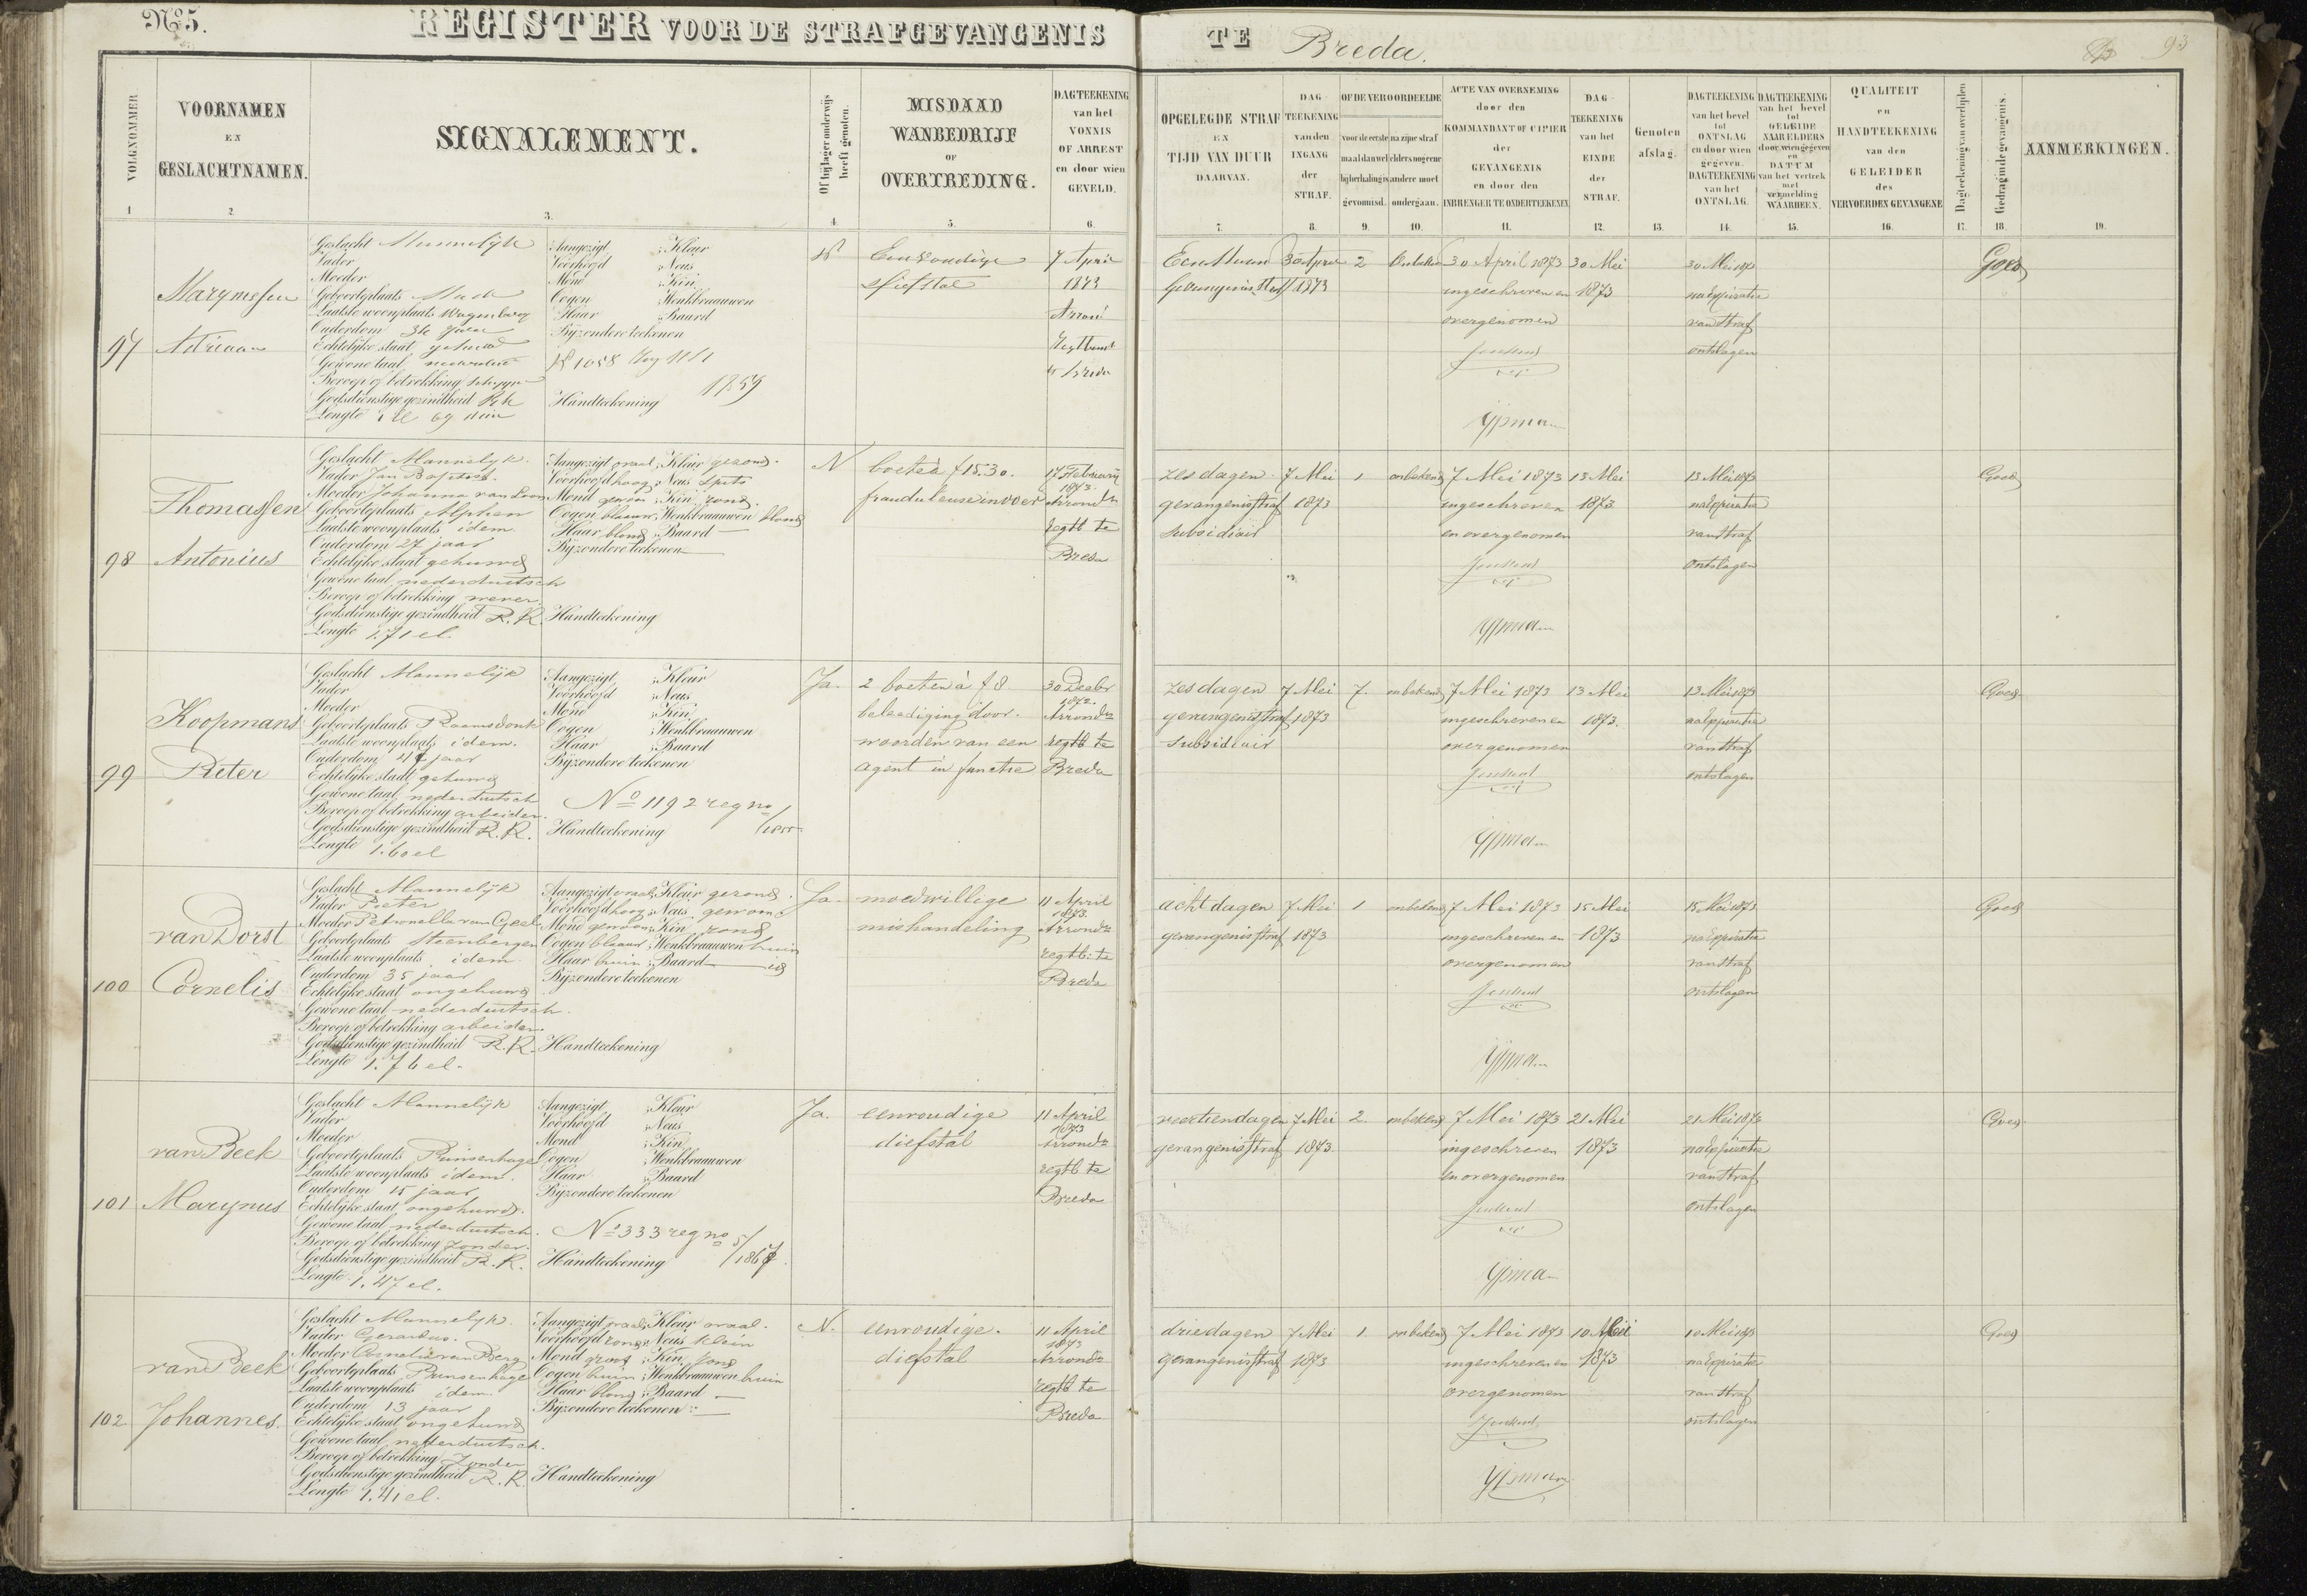 No 5. REGISTER VOOR DE STRAFGEVANGENIS TE Breda. 93
VOLGNOMMER
1
VOORNAMEN
EN
GESLACHTNAMEN.
2.
SIGNALEMENT.
3.
Of hij lager onderwijs
heeft genoten.
4.
MISDAAD
WANBEDRIJF
OF
OVERTREDING.
5.
DAGTEEKENING
van het
VONNIS
OF ARREST
en door wien
GEVELD.
6.
OPGELEGDE STRAF
EN
TIJD VAN DUUR
DAARVAN.
7.
DAG
TEEKENING
van den
INGANG
der
STRAF.
8.
OF DE VEROORDEELDE
voor de eerste
maal dan wel
bij herhaling is
gevonnisd.
9.
na zijne straf
elders nog eene
andere moet
ondergaan.
10.
ACTE VAN OVERNEMING
door den
KOMMANDANT OF CIPIER
der
GEVANGENIS
en door den
INBRENGER TE ONDERTEEKENEN
11.
DAG
TEEKENING
van het
EINDE
der
STRAF.
12.
Genoten
afslag.
13.
DAGTEEKENING
van het bevel
tot
ONTSLAG
en door wien
gegeven.
DAGTEEKENING
van het
ONTSLAG.
14.
DAGTEEKENING
van het bevel
tot
GELEIDE
NAAR ELDERS
door wien gegeven
en
DATUM
van het vertrek
met
vermelding
WAARHEEN.
15.
QUALITEIT
en
HANDTEEKENING
van den
GELEIDER
des
VERVOERDEN GEVANGENE
16.
Dagteekening van overlijden
17.
Gedrag in de gevangenis.
18.
AANMERKINGEN.
19.
97
Adriaan
Geslacht Mannelijk
Vader
Moeder
Geboorteplaats Made
Laatste woonplaats Wagenberg
Ouderdom 36 jaar
Echtelijke staat gehuwd
Gewone taal
Beroep of betrekking
Godsdienstige gezindheid RK
Lengte 1 el 69
Aangezigt ; Kleur
Voorhoofd ; Neus
Mond ; Kin
Oogen ; Wenkbraauwen
Haar ; Baard
Bijzondere teekenen
1859
Handteekening
N
Eenvoudige
diefstal
7 April
1873
Arrond
Regtbank
te Breda
Een Maand
Gevangenisstraf
30 April
1873
2
Onbekend
30 April 1873
ingeschreven en
overgenomen
Ypma
30 Mei
1873
30 Mei 1873
na Expiratie
van straf
ontslagen
Goed
98
Thomassen
Antonius
Geslacht Mannelijk.
Vader Jan Baptist.
Moeder Johanna van Loon
Geboorteplaats Alphen
Laatste woonplaats idem
Ouderdom 27 jaar
Echtelijke staat gehuwd
Gewone taal nederduitsch
Beroep of betrekking wever
Godsdienstige gezindheid R.K.
Lengte 1.71 el.
Aangezigt ovaal ; Kleur gezond.
Voorhoofd hoog ; Neus spits
Mond gewoon ; Kin rond.
Oogen blaauw ; Wenkbraauwen blond
Haar blond ; Baard —
Bijzondere teekenen —
Handteekening
N
boete à f 15.30.
frauduleuse invoer
17 February
1873.
Arronds
regtb te
Breda
zes dagen
gevangenisstraf
subsidiair
7 Mei
1873
1
onbekend
7 Mei 1873
ingeschreven
en overgenomen
Ypma
13 Mei
1873
13 Mei 1873
na Expiratie
van straf
ontslagen
Goed
99
Koopmans
Pieter
Geslacht Mannelijk
Vader
Moeder
Geboorteplaats Raamsdonk
Laatste woonplaats idem.
Ouderdom jaar
Echtelijke staat gehuwd
Gewone taal nederduitsch
Beroep of betrekking arbeider.
Godsdienstige gezindheid R.K.
Lengte 1.60 el
Aangezigt ; Kleur
Voorhoofd ; Neus
Mond ; Kin
Oogen ; Wenkbraauwen
Haar ; Baard
Bijzondere teekenen
No 1192 reg no
Handteekening
Ja.
2 boeten à f 8
beleediging door
woorden van een
agent in functie
30 Decbr
1872.
Arronds
regtb te
Breda
zes dagen
gevangenisstraf
subsidiair
7 Mei
1873
7.
onbekend
7 Mei 1873
ingeschreven en
overgenomen
Ypma
13 Mei
1873.
13 Mei 1873
na Expiratie
van straf
ontslagen
Goed.
100
van Dorst
Cornelis
Geslacht Mannelijk
Vader Pieter
Moeder Petronella van Geel
Geboorteplaats Steenbergen
Laatste woonplaats idem
Ouderdom 35 jaar
Echtelijke staat ongehuwd
Gewone taal nederduitsch.
Beroep of betrekking arbeider.
Godsdienstige gezindheid R.K.
Lengte 1.76 el.
Aangezigt ovaal ; Kleur gezond.
Voorhoofd hoog ; Neus gewoon
Mond gewoon ; Kin rond
Oogen blaauw ; Wenkbraauwen bruin
Haar bruin ; Baard — id
Bijzondere teekenen
Handteekening
Ja.
moedwillige
mishandeling
11 April
1873.
Arronds
regtb: te
Breda
acht dagen
gevangenisstraf
7 Mei
1873
1
onbekend
7 Mei 1873
ingeschreven en
overgenomen
Ypma
15 Mei
1873
15 Mei 1873
na Expiratie
van straf
ontslagen
Goed
101
van Beek
Marynus
Geslacht Mannelijk
Vader
Moeder
Geboorteplaats Prinsenhage
Laatste woonplaats idem.
Ouderdom 15 jaar
Echtelijke staat ongehuwd.
Gewone taal nederduitsch.
Beroep of betrekking zonder.
Godsdienstige gezindheid R.K.
Lengte 1.47 el.
Aangezigt ; Kleur
Voorhoofd ; Neus
Mond ; Kin
Oogen ; Wenkbraauwen
Haar ; Baard
Bijzondere teekenen
No 333 reg no 5/1867.
Handteekening
Ja.
eenvoudige
diefstal
11 April
1873
Arronds
regtb te
Breda
veertien dagen
gevangenisstraf
7 Mei
1873.
2.
onbekend
7 Mei 1873
ingeschreven
en overgenomen
Ypma
21 Mei
1873
21 Mei 1873
na Expiratie
van straf
ontslagen
Goed.
102
van Beek
Johannes.
Geslacht Mannelyk
Vader Gerardus.
Moeder Cornelia van Berg
Geboorteplaats Prinsenhage
Laatste woonplaats idem.
Ouderdom 13 jaar
Echtelijke staat ongehuwd
Gewone taal nederduitsch.
Beroep of betrekking zonder
Godsdienstige gezindheid R.K.
Lengte 1.41 el.
Aangezigt ovaal ; Kleur ovaal.
Voorhoofd rond ; Neus klein
Mond groot ; Kin rond
Oogen bruin ; Wenkbraauwen bruin
Haar blond ; Baard —
Bijzondere teekenen —
Handteekening
N.
eenvoudige.
diefstal
11 April
1873
Arronds
regtb te
Breda
drie dagen
gevangenisstraf
7 Mei
1873
1
onbekend
7 Mei 1873
ingeschreven en
overgenomen
Ypma
10 Mei
1873
10 Mei 1873
na Expiratie
van straf
ontslagen
Goed